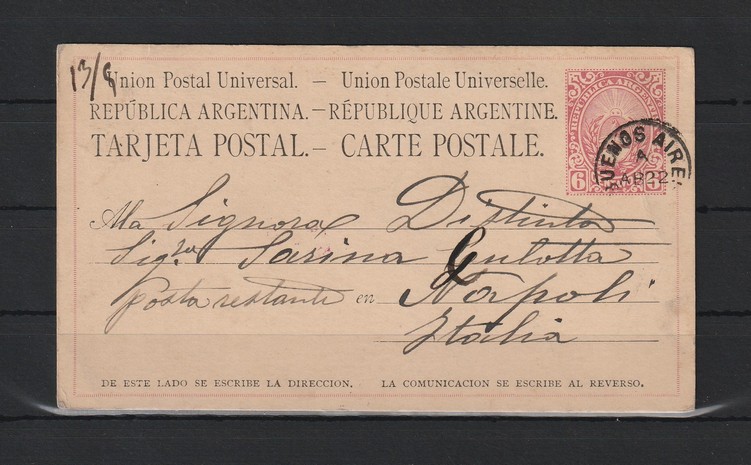 13/9
Union Postal Universal. — Union Postale Universelle.
REPÚBLICA ARGENTINA. — RÉPUBLIQUE ARGENTINE.
TARJETA POSTAL. — CARTE POSTALE.
REPUBLICA ARGENTINA
6 5
BUENOS AIRES
A
AB22
Alla Signora Distinta
Sig.ra Sarina Gulotta
Posta restante en Napoli
Italia
DE ESTE LADO SE ESCRIBE LA DIRECCION. LA COMUNICACION SE ESCRIBE AL REVERSO.